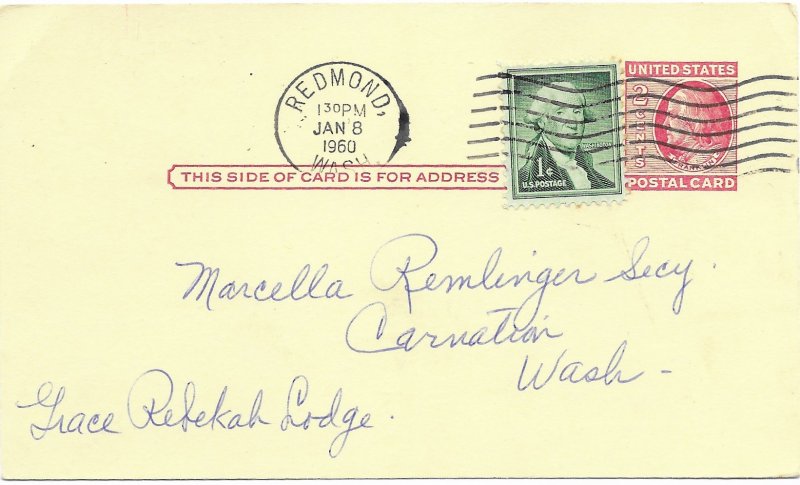 REDMOND,
1 30 PM
JAN 8
1960
WASH.
UNITED STATES
2 CENTS
WASHINGTON
1¢
U.S. POSTAGE
POSTAL CARD
THIS SIDE OF CARD IS FOR ADDRESS
Marcella Remlinger Secy.
Carnation
Wash -
Grace Rebekah Lodge.